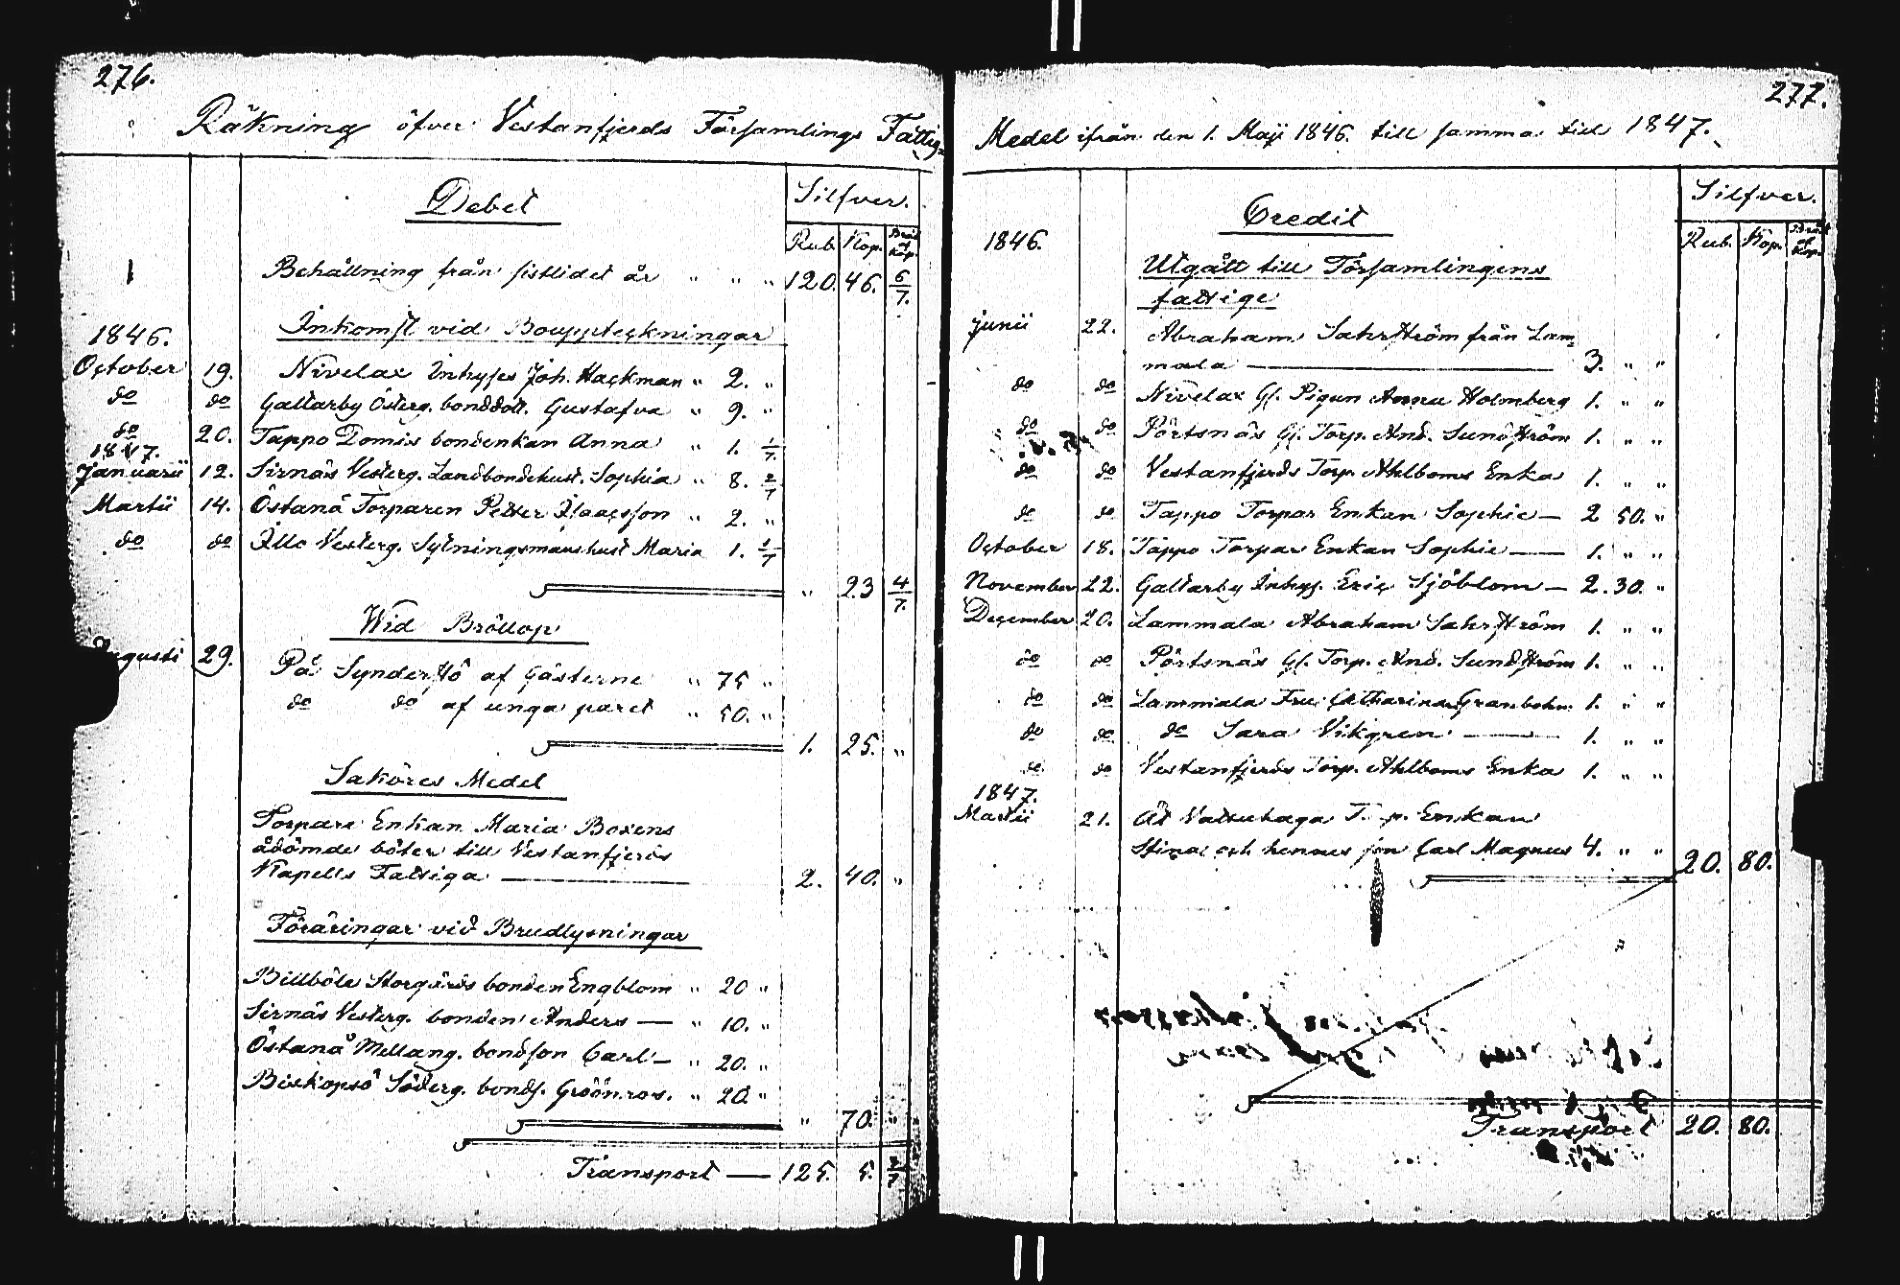 276.
Räkning öfver Vestanfjerds Församlings Fattig-
Debet
Silfver.
Rub. Kop. Bråk af Kop.
Behållning från sistlidet år " " " 120. 46. 6/7.
Inkomst vid Bouppteckningar
1846.
October 19. Nivelax Inhyses Joh. Hackman " 2. "
do do Galtarby Österg. bonddott. Gustafva " 9. "
do 20. Tappo Domis bondenkan Anna " 1. 1/7.
1847.
Januarii 12. Sirnäs Vesterg. Landbondehust. Sophia " 8. 2/7
Martii 14. Östanå Torparen Petter Isaacsson " 2. "
do do Illo Vesterg. Sytningsmanshust Maria 1. 1/7
" 23 4/7.
Wid Bröllop
Augusti 29. På Syndersstö af Gästerne " 75 "
do do af unga paret " 50. "
1. 25. "
Saköres Medel
Torpare Enkan Maria Boxens
ådömde böter till Vestanfjerds
Kapells Fattiga 2. 40. "
Föräringar vid Brudlysningar
Billböle Storgårds bonden Engblom " 20 "
Sirnäs Vesterg. bonden Anders — " 10. "
Östanå Mellang. bondson Carl — " 20. "
Biskopsö Söderg. bonds. Grönroos. " 20 "
" 70. "
Transport — 125. 5. 3/7
277.
Medel ifrån den 1. Maji 1846. till samma tid 1847.
Credit
Silfver.
Rub. Kop. Bråk af Kop.
1846.
Utgått till Församlingens
fattige
Junii 22. Abraham Sahrström från Lam-
mala — 3. " "
do do Nivelax Gl. Pigan Anna Holmberg 1. " "
do do Pörtsnäs Gl. Torp. And. Sundström 1. " "
do do Vestanfjerds Torp. Ahlboms Enka 1. " "
do do Tappo Torpar Enkan Sophie — 2 50. "
October 18. Tappo Torpar Enkan Sophie — 1. " "
November 22. Galtarby Inhys. Eric Sjöblom — 2. 30. "
December 20. Lammala Abraham Sahrström 1. " "
do do Pörtsnäs Gl. Torp. And. Sundström 1. " "
do do Lammala Fru Catharina Granbohm 1. " "
do do do Sara Vikgren — 1. " "
do do Vestanfjerds Torp. Ahlboms Enka 1. " "
1847.
Martii 21. Åt Torp. Enkan
Stina och hennes son Carl Magnus 4. " " 20. 80.
Transport 20. 80.